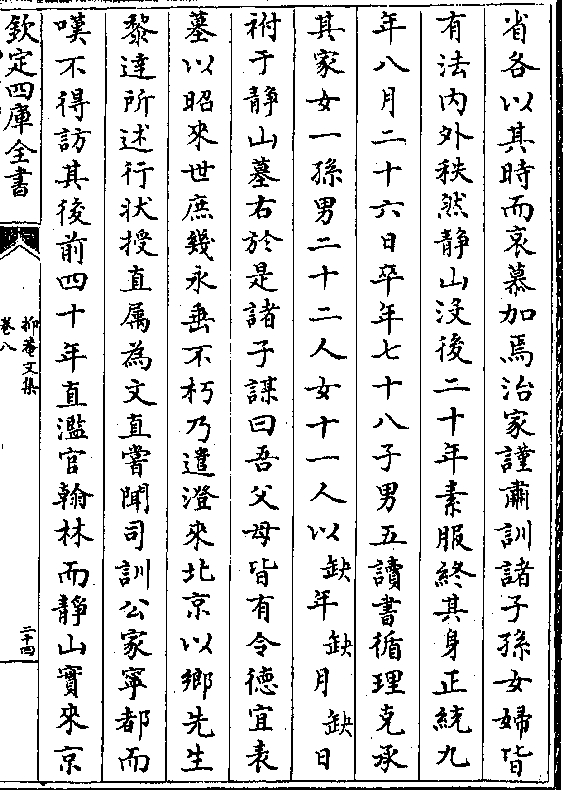 省各以其時而哀慕加焉治家謹肅訓諸子孫女婦皆
有法内外秩然静山没後二十年素服終其身正統九
年八月二十六日卒年七十八子男五讀書循理克承
其家女一孫男二十二人女十一人以缺年缺月缺日
祔于靜山墓右於是諸子謀曰吾父母皆有令徳宜表
墓以昭來世庶幾永垂不朽乃遣澄來北京以鄉先生
黎達所述行狀授直属為文直嘗聞司訓公家寧都而
嘆不得訪其後前四十年直濫官翰林而靜山實來京
欽定四庫全書
抑菴文集
卷八
二十四